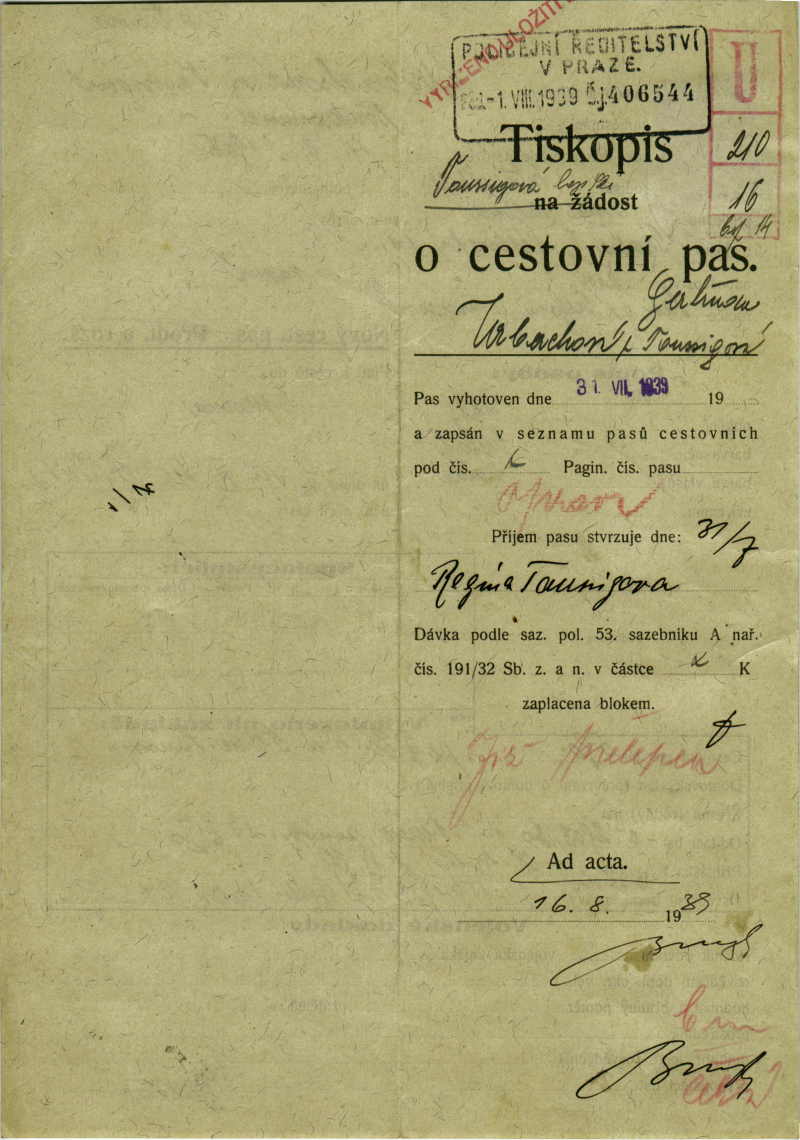 POLICEJNÍ ŘEDITELSTVÍ
V PRAZE.
-1. VIII. 1939 Č.j. 406544
U
210
16
14
Tiskopis
Taussigová
na žádost
o cestovní pas.
Gertruda
Urbachová Taussigová
Pas vyhotoven dne 31. VII. 1939 19
a zapsán v seznamu pasů cestovních
pod čís. Pagin. čís. pasu
Příjem pasu stvrzuje dne: 31/7
Regina Taussigova
Dávka podle saz. pol. 53. sazebníku A nař.
čís. 191/32 Sb. z. a n. v částce K
zaplacena blokem.
Ad acta.
16. 8. 1939